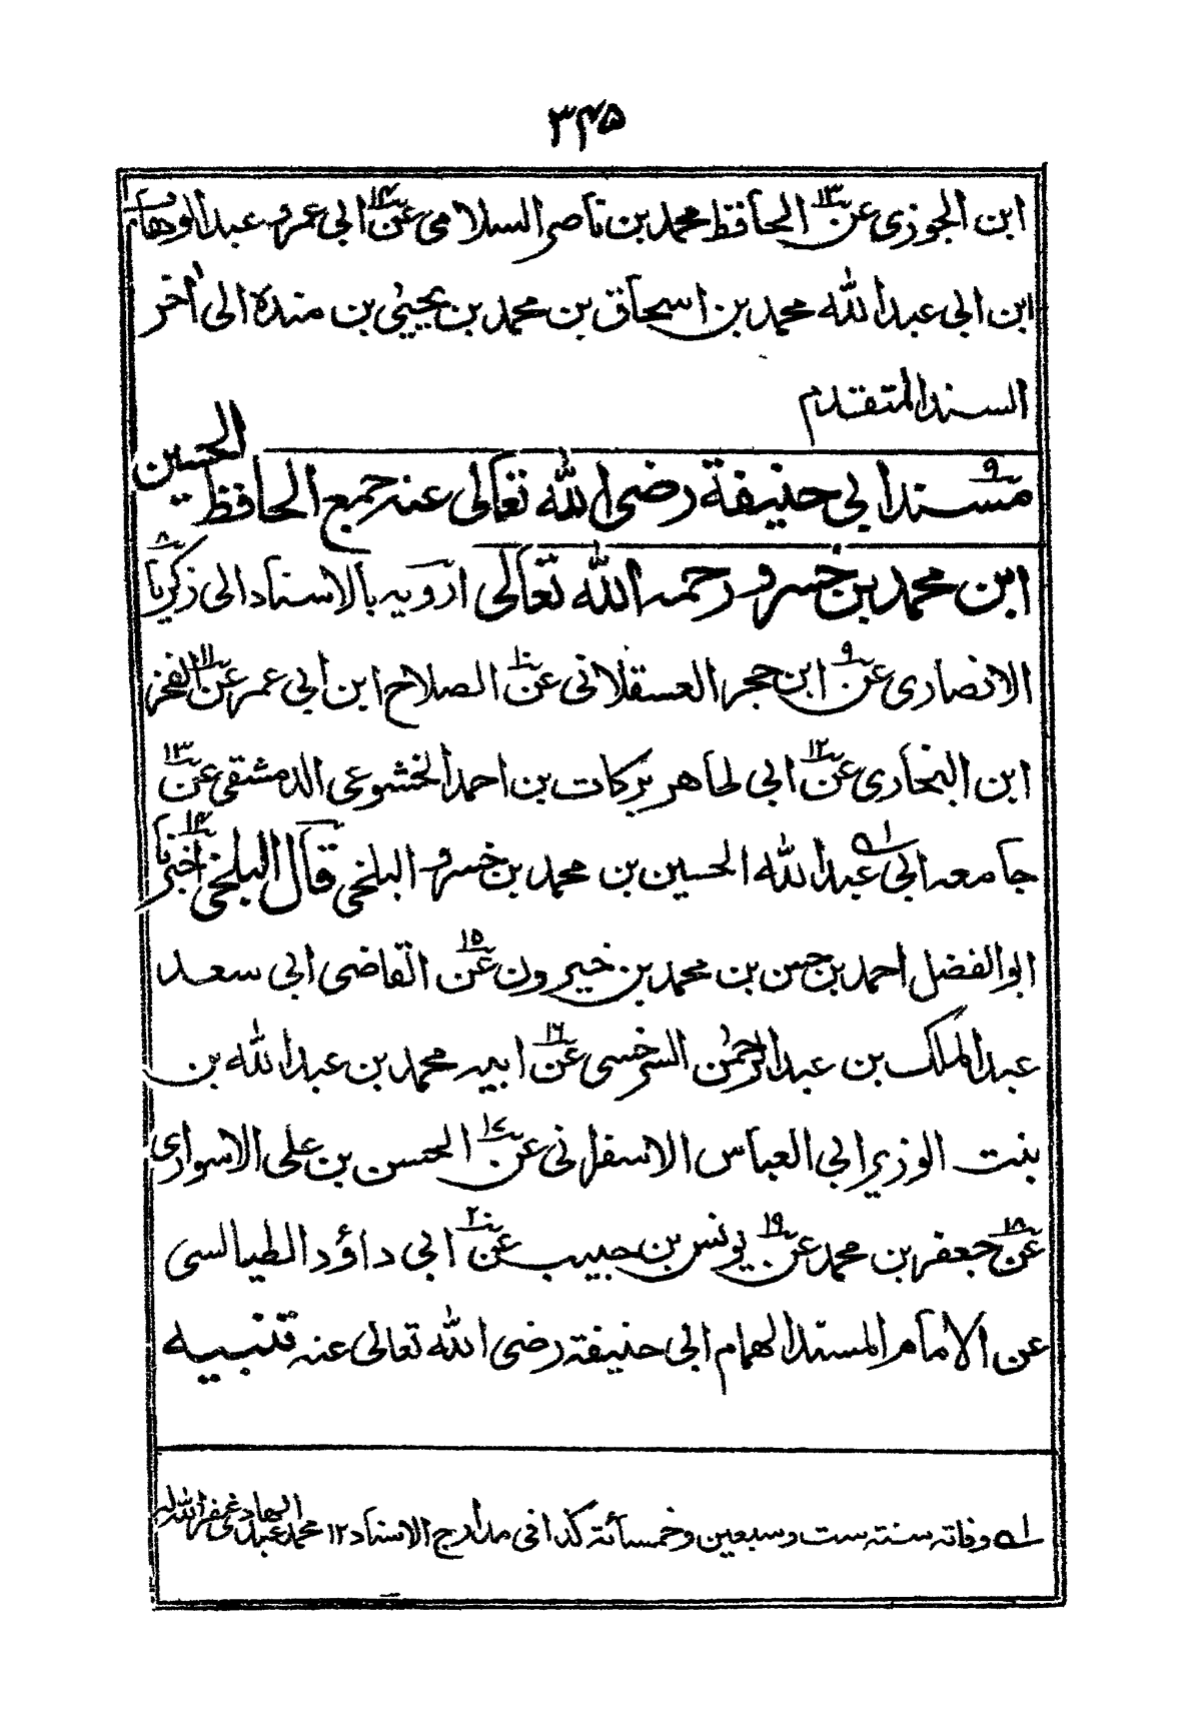 ۳۴۵
ابن الجوزی عن۱۳ الحافظ محمد بن ناصر السلامی عن۱۴ ابی عمرو عبدالوهاب
ابن ابی عبد الله محمد بن اسحاق بن محمد بن یحییٰ بن مندة الی اٰخر
السند المتقدم
۹ مسند ابی حنیفة رضی الله تعالی عنه جمع الحافظ الحسین
ابن محمد بن خسرو رحمه الله تعالی ارویه بالاسناد الی زکریا۸
الانصاری عن۹ ابن حجر العسقلانی عن۱۰ الصلاح ابن ابی عمر عن۱۱ الفخر
ابن البخاری عن۱۲ ابی طاهر برکات بن احمد الخشوعی الدمشقی عن۱۳
جامعه ابی عبد الله۱ الحسین بن محمد بن خسرو البلخی قال البلخی اخبرنا۱۴
ابو الفضل احمد بن حسن بن محمد بن خیرون عن۱۵ القاضی ابی سعد
عبد الملک بن عبد الرحمٰن السرخسی عن۱۶ ابیه محمد بن عبد الله بن
بنت الوزیر ابی العباس الاسفرانی عن۱۷ الحسن بن علی الاسواری
عن۱۸ جعفر بن محمد عن۱۹ یونس بن حبیب عن۲۰ ابی داؤد الطیالسی
عن الامام المسند الهمام ابی حنیفة رضی الله تعالی عنه تنبیه
۱ه وفاته سنة ست وسبعین وخمسائة کذا فی مدارج الاسناد ۱۲ محمد عبد الهادی غفر الله له